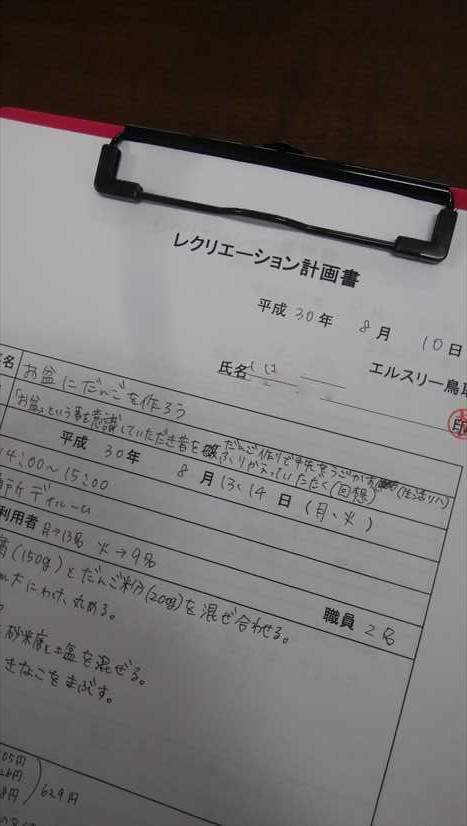 レクリエーション計画書
平成 30年 8月 10日
氏名
エルスリー鳥取
印
名 お盆にだんごを作ろう
「お盆」という事を意識していただき昔を ふりかえっていただく(回想)
だんご作りで手先をうごかす (生活リハ)
平成 30年 8月13、14日 (月、火)
14:00〜15:00
デイルーム
利用者 月→13名 火→9名 職員 2名
腐(150g)とだんご粉(200g)を混ぜ合わせる。
大にわけ、丸める。
砂糖と塩を混ぜる。
きなこをまぶす。
05円
26円
8円
629円